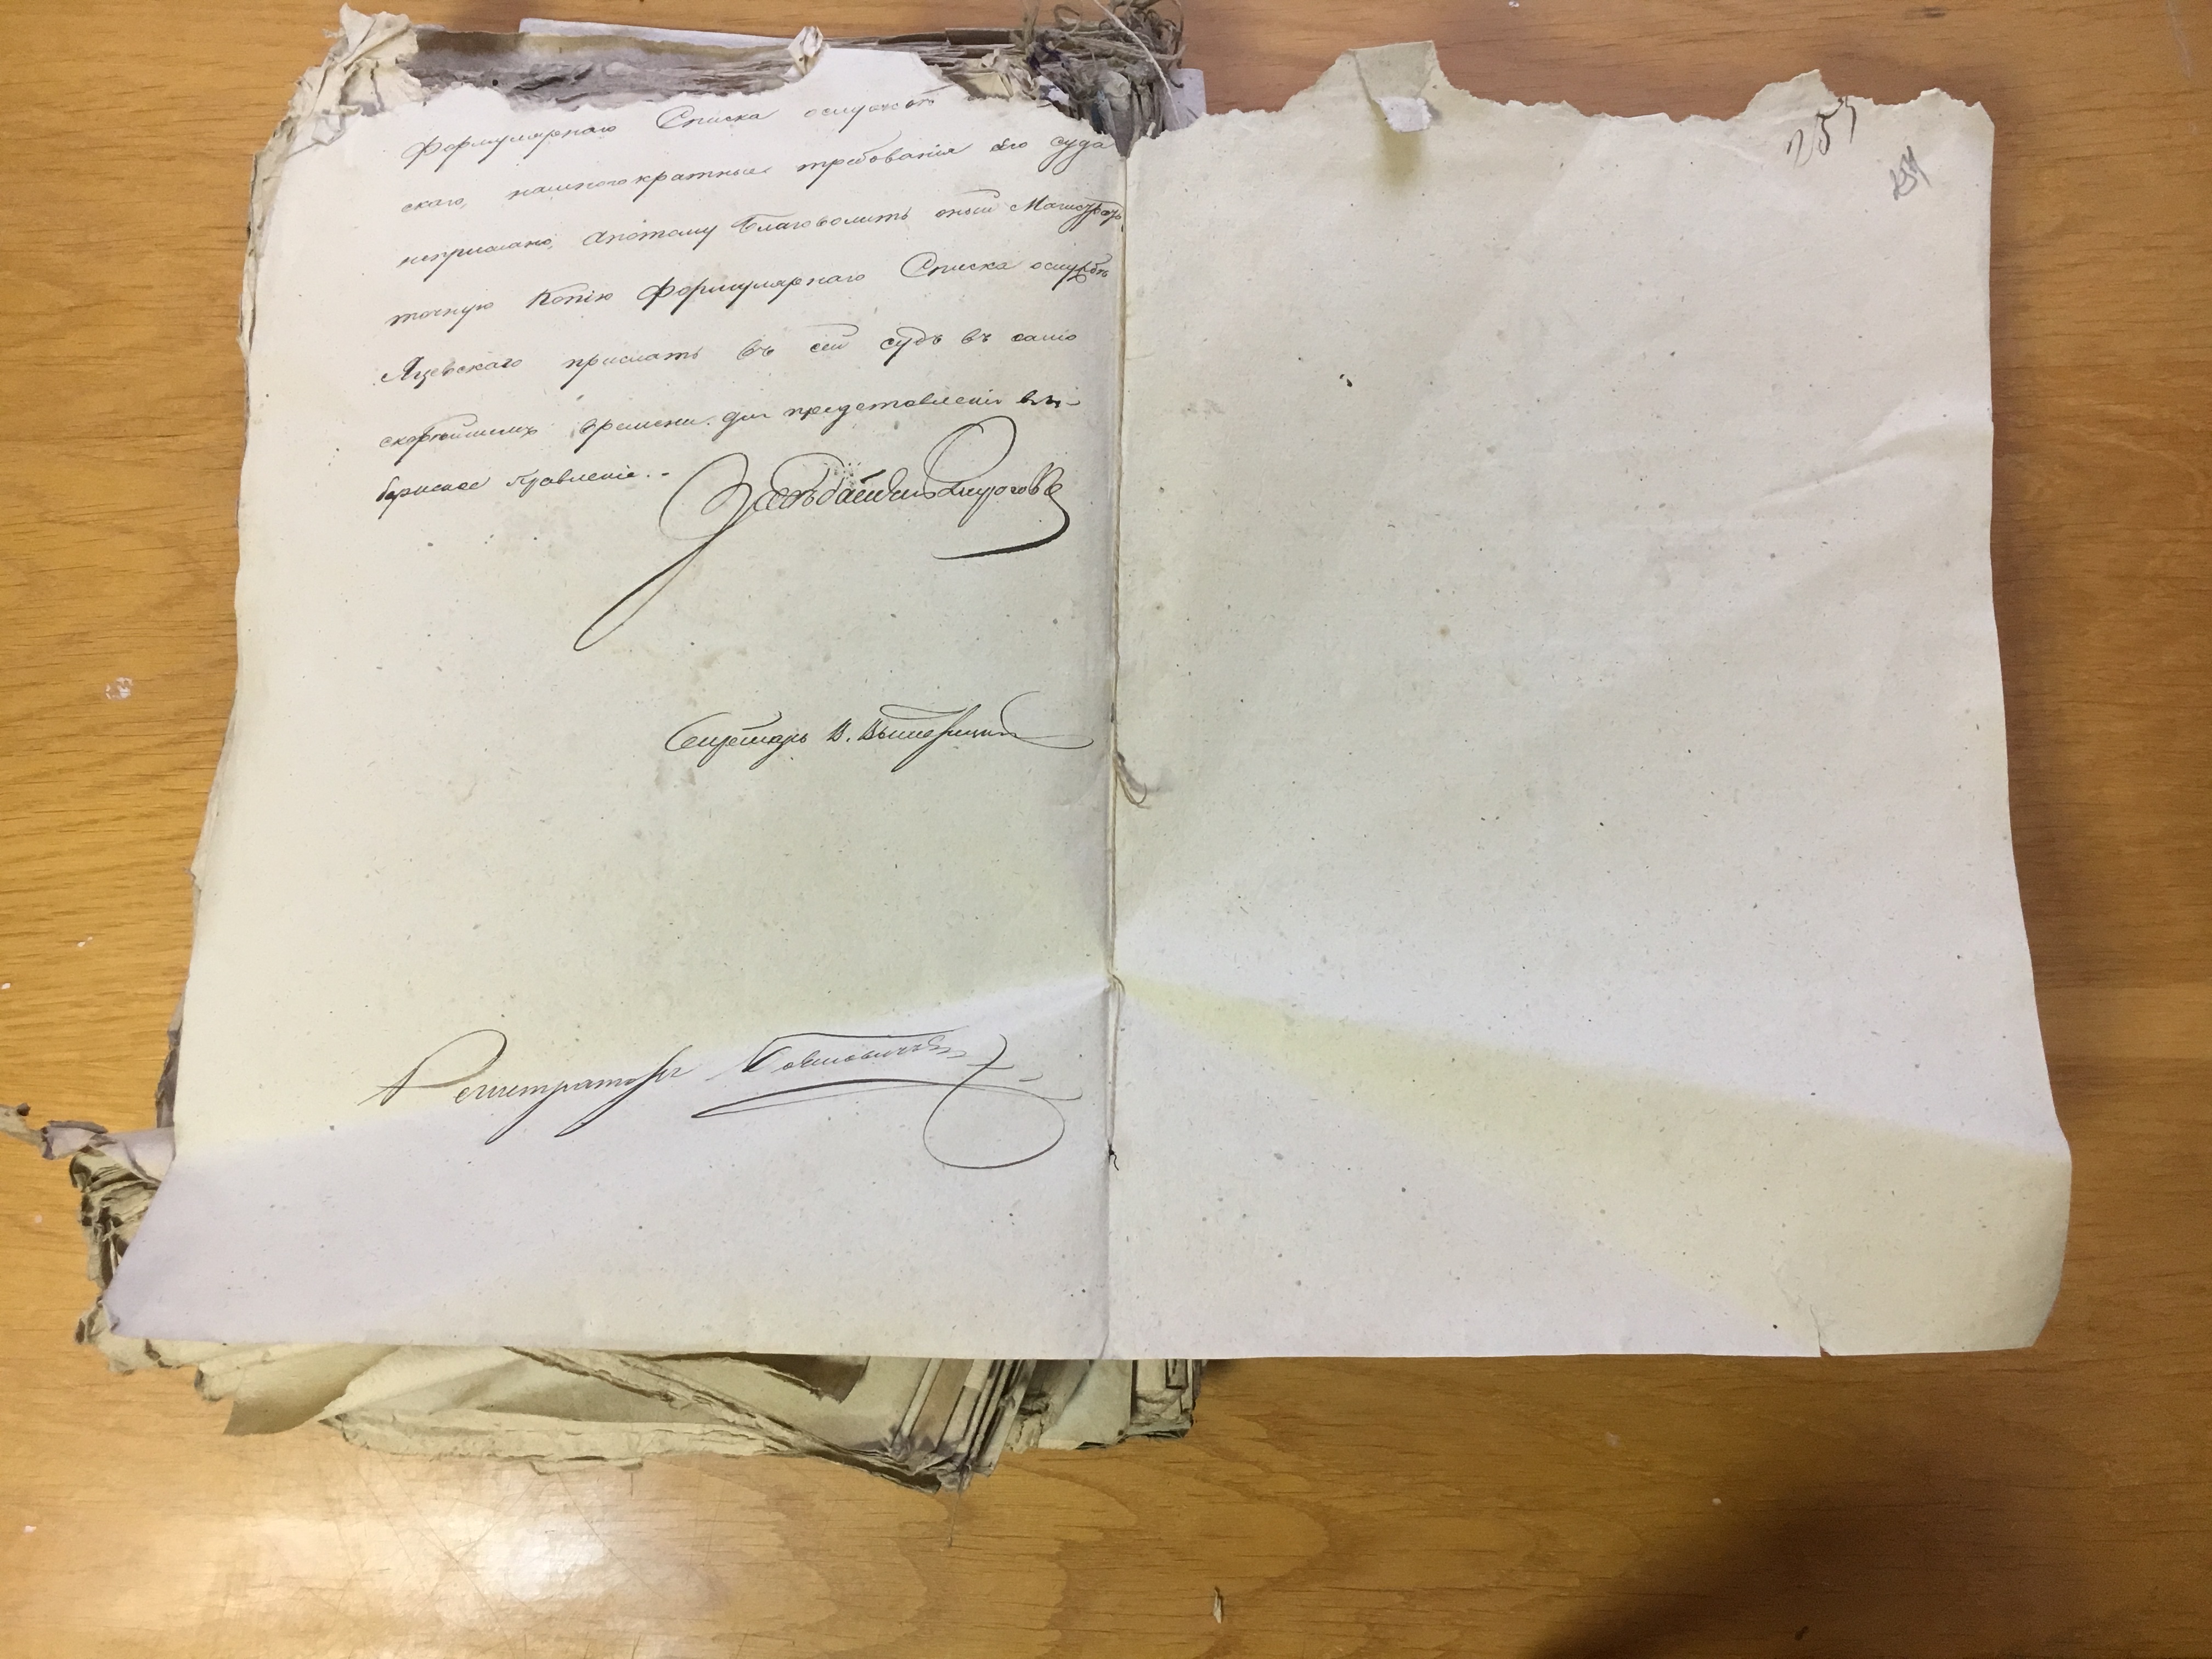 формулярнаго Списка ослужбѣ
скаго, намногократные требованія его суда
неприслано, апотому благоволитъ оный Магистратъ
точную Копію формулярнаго Списка ослужбѣ
Яцевскаго прислать въ сей судъ въ само
скорѣйшемъ времени для представленія въ гу-
бернское Правленіе. -
Засѣдатель
Секретарь В.
Регистраторъ
251
251